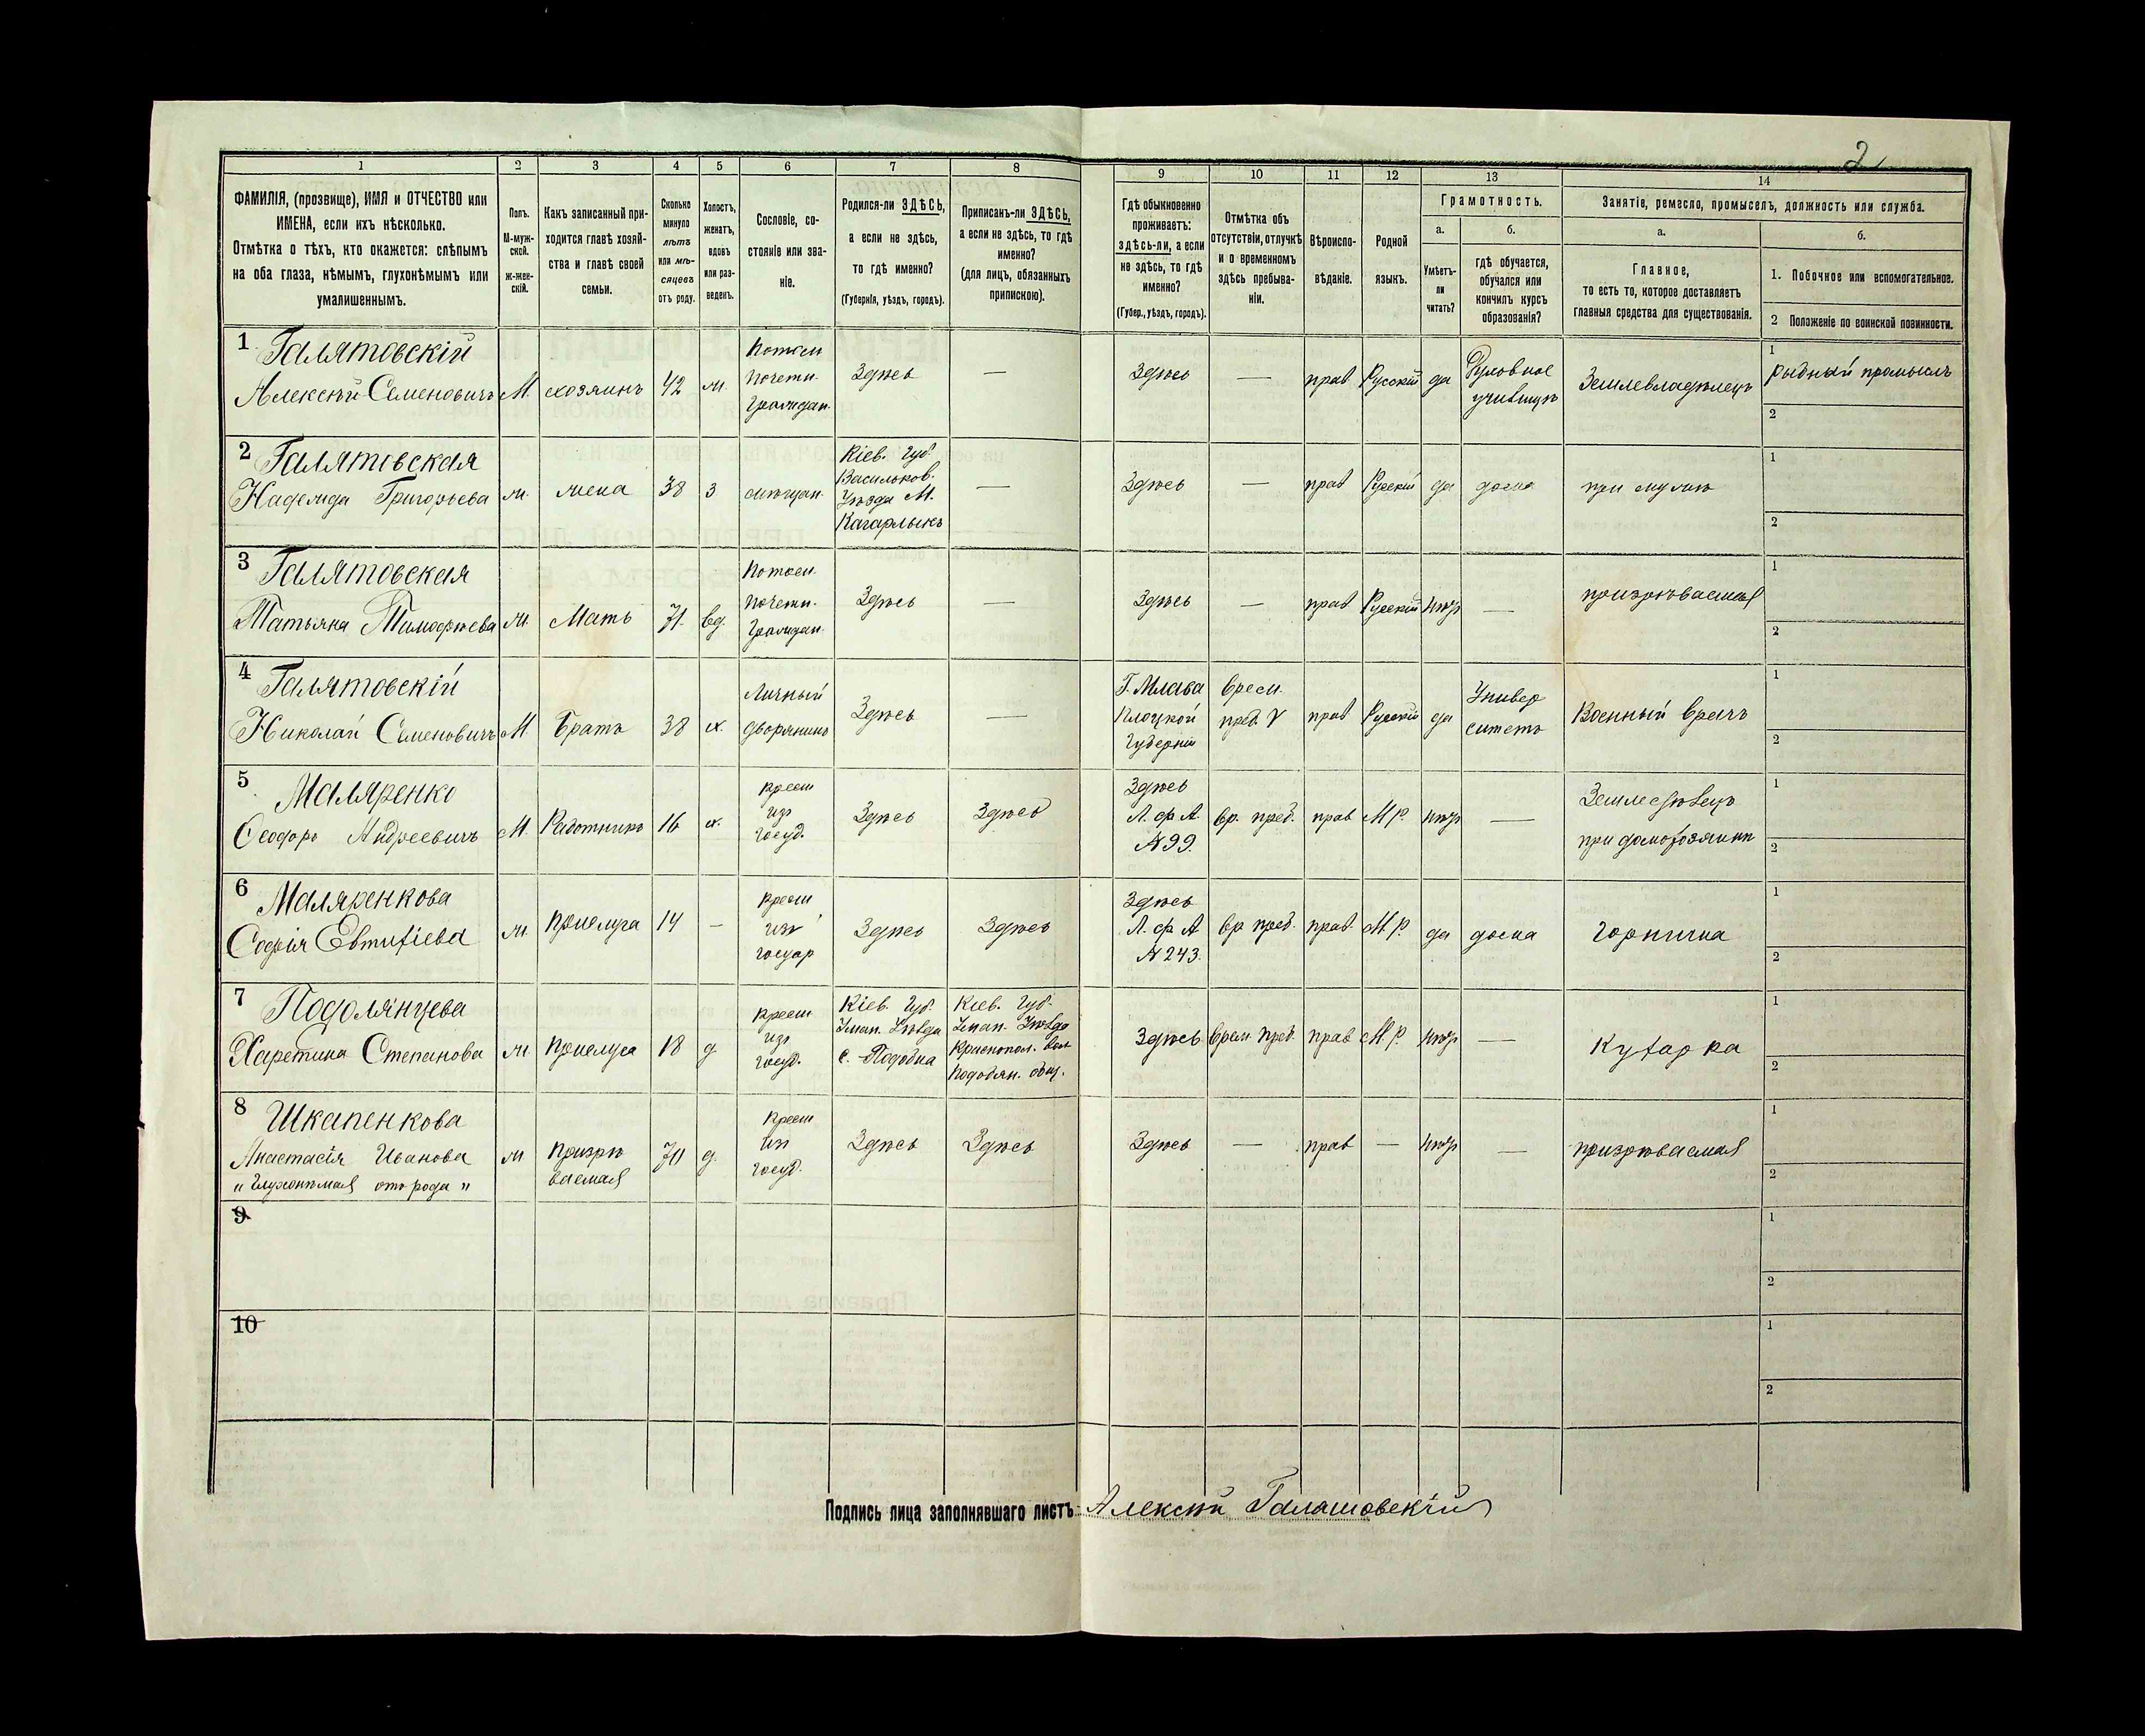 2
1 2 3 4 5 6 7 8 9 10 11 12 13 14
ФАМИЛІЯ, (прозвище), ИМЯ и ОТЧЕСТВО или
ИМЕНА, если ихъ нѣсколько.
Отмѣтка о тѣхъ, кто окажется: слѣпымъ
на оба глаза, нѣмымъ, глухонѣмымъ или
умалишеннымъ.
Полъ.
М-муж-
ской.
ж-жен-
скій.
Какъ записанный при-
ходится главѣ хозяй-
ства и главѣ своей
семьи.
Сколько
минуло
лѣтъ
или мѣ-
сяцевъ
отъ роду.
Холостъ,
женатъ,
вдовъ
или раз-
веденъ.
Сословіе, со-
стояніе или зва-
ніе.
Родился-ли ЗДѢСЬ,
а если не здѣсь,
то гдѣ именно?
(Губернія, уѣздъ, городъ).
Приписанъ-ли ЗДѢСЬ,
а если не здѣсь, то гдѣ
именно?
(для лицъ, обязанныхъ
припискою).
Гдѣ обыкновенно
проживаетъ:
здѣсь-ли, а если
не здѣсь, то гдѣ
именно?
(Губер., уѣздъ, городъ).
Отмѣтка объ
отсутствіи, отлучкѣ
и о временномъ
здѣсь пребыва-
ніи.
Вѣроиспо-
вѣданіе.
Родной
языкъ.
Грамотность.
а.
Умѣетъ-
ли
читать?
б.
гдѣ обучается,
обучался или
кончилъ курсъ
образованія?
Занятіе, ремесло, промыселъ, должность или служба.
а.
Главное,
то есть то, которое доставляетъ
главныя средства для существованія.
б.
1. Побочное или вспомогательное.
2 Положеніе по воинской повинности.
1 Галятовскій
Алексѣй Семеновичъ
М.
хозяинъ
42
ж.
Потом
почетн.
граждан.
Здѣсь
—
Здѣсь
—
прав
Русскій
да
Духовное
училищѣ
Землевладѣлецъ
1
рыбный промыслъ
2
2 Галятовская
Надежда Григорьева
ж.
жена
38
З
мѣщан.
Кіев. Губ.
Васильков.
Уѣзда М.
Кагарлыкъ
—
Здѣсь
—
прав
Русскій
да
дома
при мужѣ
1
2
3 Галятовская
Татьяна Тимофѣева
ж.
Мать
71.
вд.
Потом.
почетн.
граждан.
Здѣсь
—
Здѣсь
—
прав
Русскій
нѣт
—
призрѣваемая
1
2
4 Галятовскій
Николай Семеновичъ
М.
Братъ
38
х.
Личный
дворянинъ
Здѣсь
—
Г. Млава
Плоцкой
Губерніи
врем.
преб.
прав
Русскій
да
Универ
ситетъ
Военный врачъ
1
2
5 Маляренко
Ѳеодоръ Андреевичъ
М.
Работникъ
16
х.
крест
изъ
госуд.
Здѣсь
Здѣсь
Здѣсь
Л. ф А.
№ 99.
вр. преб.
прав
М. Р.
нѣт
—
Земледѣлецъ
при домохозяинѣ
1
2
6 Маляренкова
Софія Евтихіева
ж.
прислуга
14
—
крест
изъ
государ
Здѣсь
Здѣсь
Здѣсь
Л. ф А
№ 243.
вр преб.
прав.
М. Р.
да
дома
Горнична
1
2
7 Подолянцева
Харетина Степанова
ж
прислуга
18
д
крест
изъ
госуд.
Кіев. Губ.
Уман. Уѣзда
с. Подобна
Кіев. Губ.
Уман. Уѣзда
Краснопол. вол
Подобян. общ.
Здѣсь
врем. преб.
прав
М. Р
нѣт
—
Кухарка
1
2
8 Шкапенкова
Анастасія Иванова
„ Глухонѣмая отъ рода "
ж
призрѣ
ваемая
70
д.
крест
изъ
госуд.
Здѣсь
Здѣсь
Здѣсь
—
прав
—
нѣт
—
призрѣваемая
1
2
9
1
2
10
1
2
Подпись лица заполнявшаго листъ Алексѣй Галятовскій